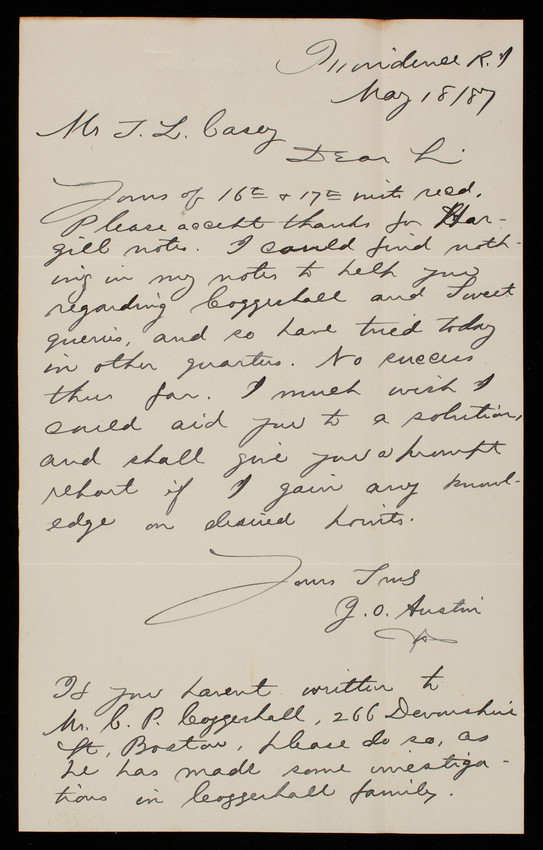 Providence R.I
May 18/87
Mr T. L. Casey
Dear Sir
Yours of 16th & 17th inst recd.
Please accept thanks for Har-
gill notes. I could find noth-
ing in my notes to help you
regarding Coggeshall and Sweet
queries, and so have tried today
in other quarters. No success
thus far. I much wish I
could aid you to a solution,
and shall give you a prompt
report if I gain any knowl-
edge on desired points.
Yours Truly
J. O. Austin
If you havent written to
Mr. C. P. Coggeshall, 266 Devonshire
St, Boston, please do so, as
he has made some investiga-
tions in Coggeshall family.